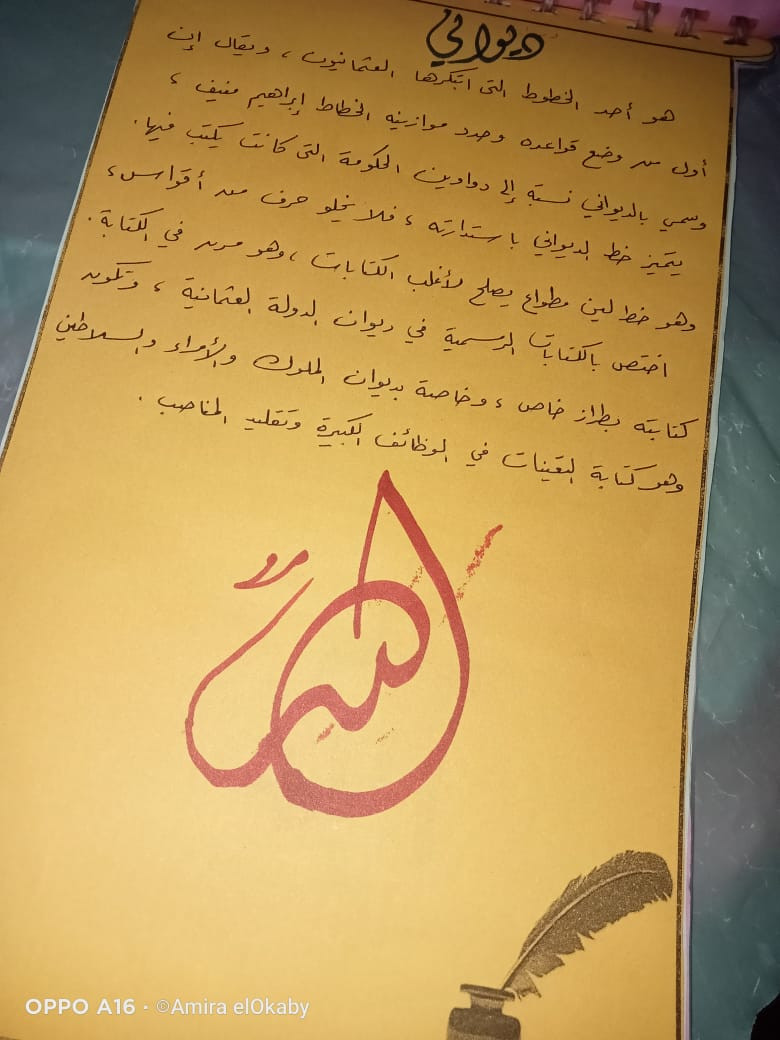 ديواني
هو أحد الخطوط التى ابتكرها العثمانيون ، ويقال إن
أول من وضع قواعده وحدد موازينه الخطاط إبراهيم منيف ،
وسمي بالديواني نسبة إلى دواوين الحكومة التى كانت يكتب فيها .
يتميز خط الديواني باستدارته ، فلا يخلو حرف من أقواس ،
وهو خط لين مطواع يصلح لأغلب الكتابات ، وهو مرن في الكتابة .
اختص بالكتابات الرسمية في ديوان الدولة العثمانية ، وتكون
كتابته بطراز خاص ، وخاصة بديوان الملوك والأمراء والسلاطين
وهو كتابة التعينات في الوظائف الكبيرة وتقليد المناصب .
OPPO A16 · ©Amira elOkaby